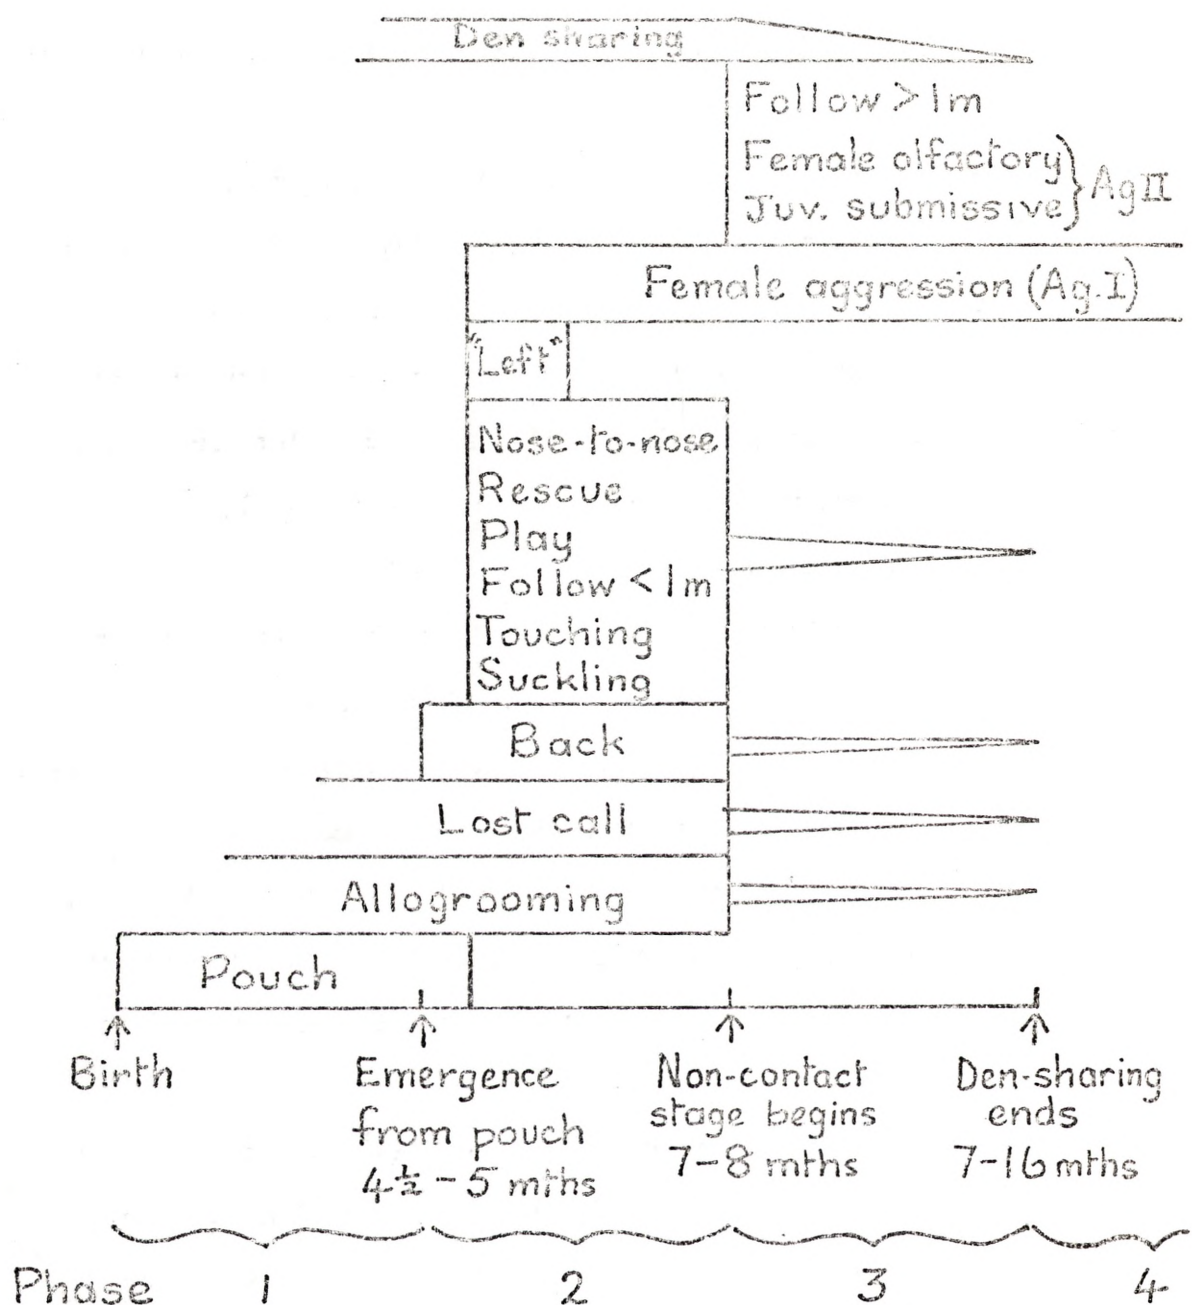 Den sharing
Follow > 1m
Female olfactory
Juv. submissive
} Ag II
Female aggression (Ag.I)
"Left"
Nose-to-nose
Rescue
Play
Follow < 1m
Touching
Suckling
Back
Lost call
Allogrooming
Pouch
Birth
Emergence
from pouch
4½ - 5 mths
Non-contact
stage begins
7-8 mths
Den-sharing
ends
7-16 mths
Phase 1 2 3 4